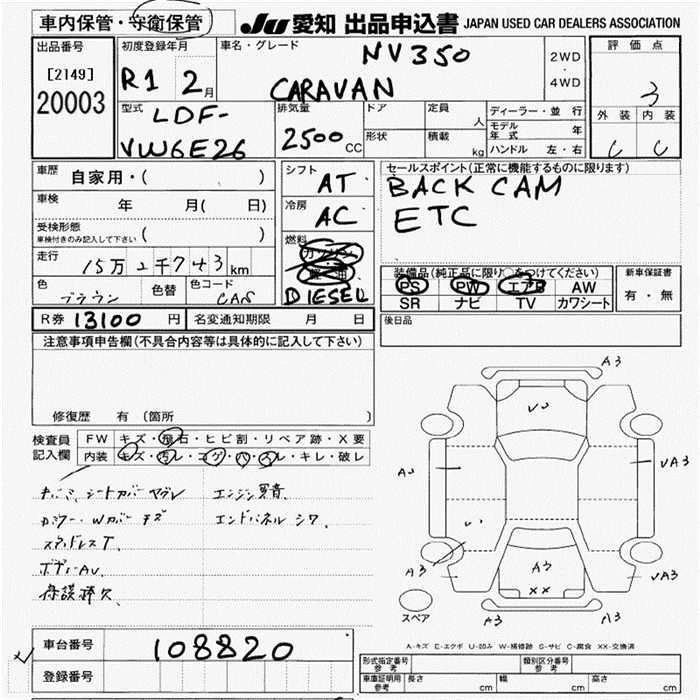 車内保管・守衛保管
JU 愛知 出品申込書 JAPAN USED CAR DEALERS ASSOCIATION
出品番号
[2149]
20003
初度登録年月
R1 2月
車名・グレード
NV350
CARAVAN
2WD
・
4WD
評価点
3
外装 内装
C C
型式
LDF-
VW6E26
排気量
2500 CC
ドア
定員
人
形状
積載
kg
ディーラー・並行
モデル年式 年
ハンドル 左・右
車歴 自家用・( )
車検 年 月( 日)
受検形態
車検付きのみ記入して下さい ( )
走行 15万2千743 km
色 ブラウン 色替 色コード CAN
シフト AT
冷房 AC
燃料
ガソリン
軽油
DIESEL
セールスポイント(正常に機能するものに限ります)
BACK CAM
ETC
装備品(純正品に限り○をつけてください)
PS PW エアB AW
SR ナビ TV カワシート
新車保証書
有・無
R券 13100 円 名変通知期限 月 日
後日品
注意事項申告欄(不具合内容等は具体的に記入して下さい)
修復歴 有 (箇所 )
検査員
記入欄
FW キズ・飛石・ヒビ割・リペア跡・X要
内装 キズ・汚レ・コゲ・穴・スレ・キレ・破レ
シートカバー ヤブレ
Wカバー キズ
スタッドレスT.
ボデーAU.
保護棒欠.
エンジン異音.
エンドパネル シワ.
A3
U
A
UA3
A3
A3
XX
UA3
A3
A3
スペア
A-キズ E-エクボ U-凹み W-補修跡 S-サビ C-腐食 XX-交換済
車台番号 108820
登録番号
形式指定番号
参考
類別区分番号
参考
車庫証明用
参考
長さ cm 幅 cm 高さ cm